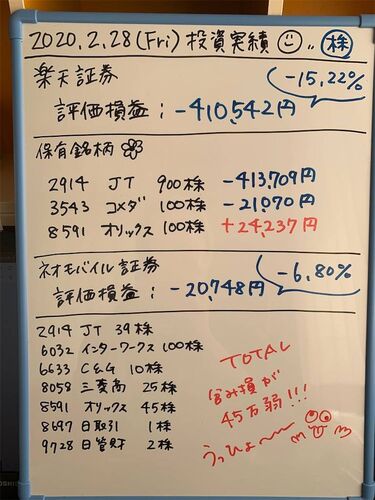 2020.2.28(Fri) 投資実績 株
楽天証券 -15.22%
評価損益：-410,542円
保有銘柄
2914 JT 900株 -413,709円
3543 コメダ 100株 -21,070円
8591 オリックス 100株 +24,237円
ネオモバイル証券 -6.80%
評価損益：-20,748円
2914 JT 39株
6032 インターワークス 100株
6633 C&G 10株
8058 三菱商 25株
8591 オリックス 45株
8697 日取引 1株
9728 日管財 2株
TOTAL
含み損が
45万弱!!!
うっひょ〜〜